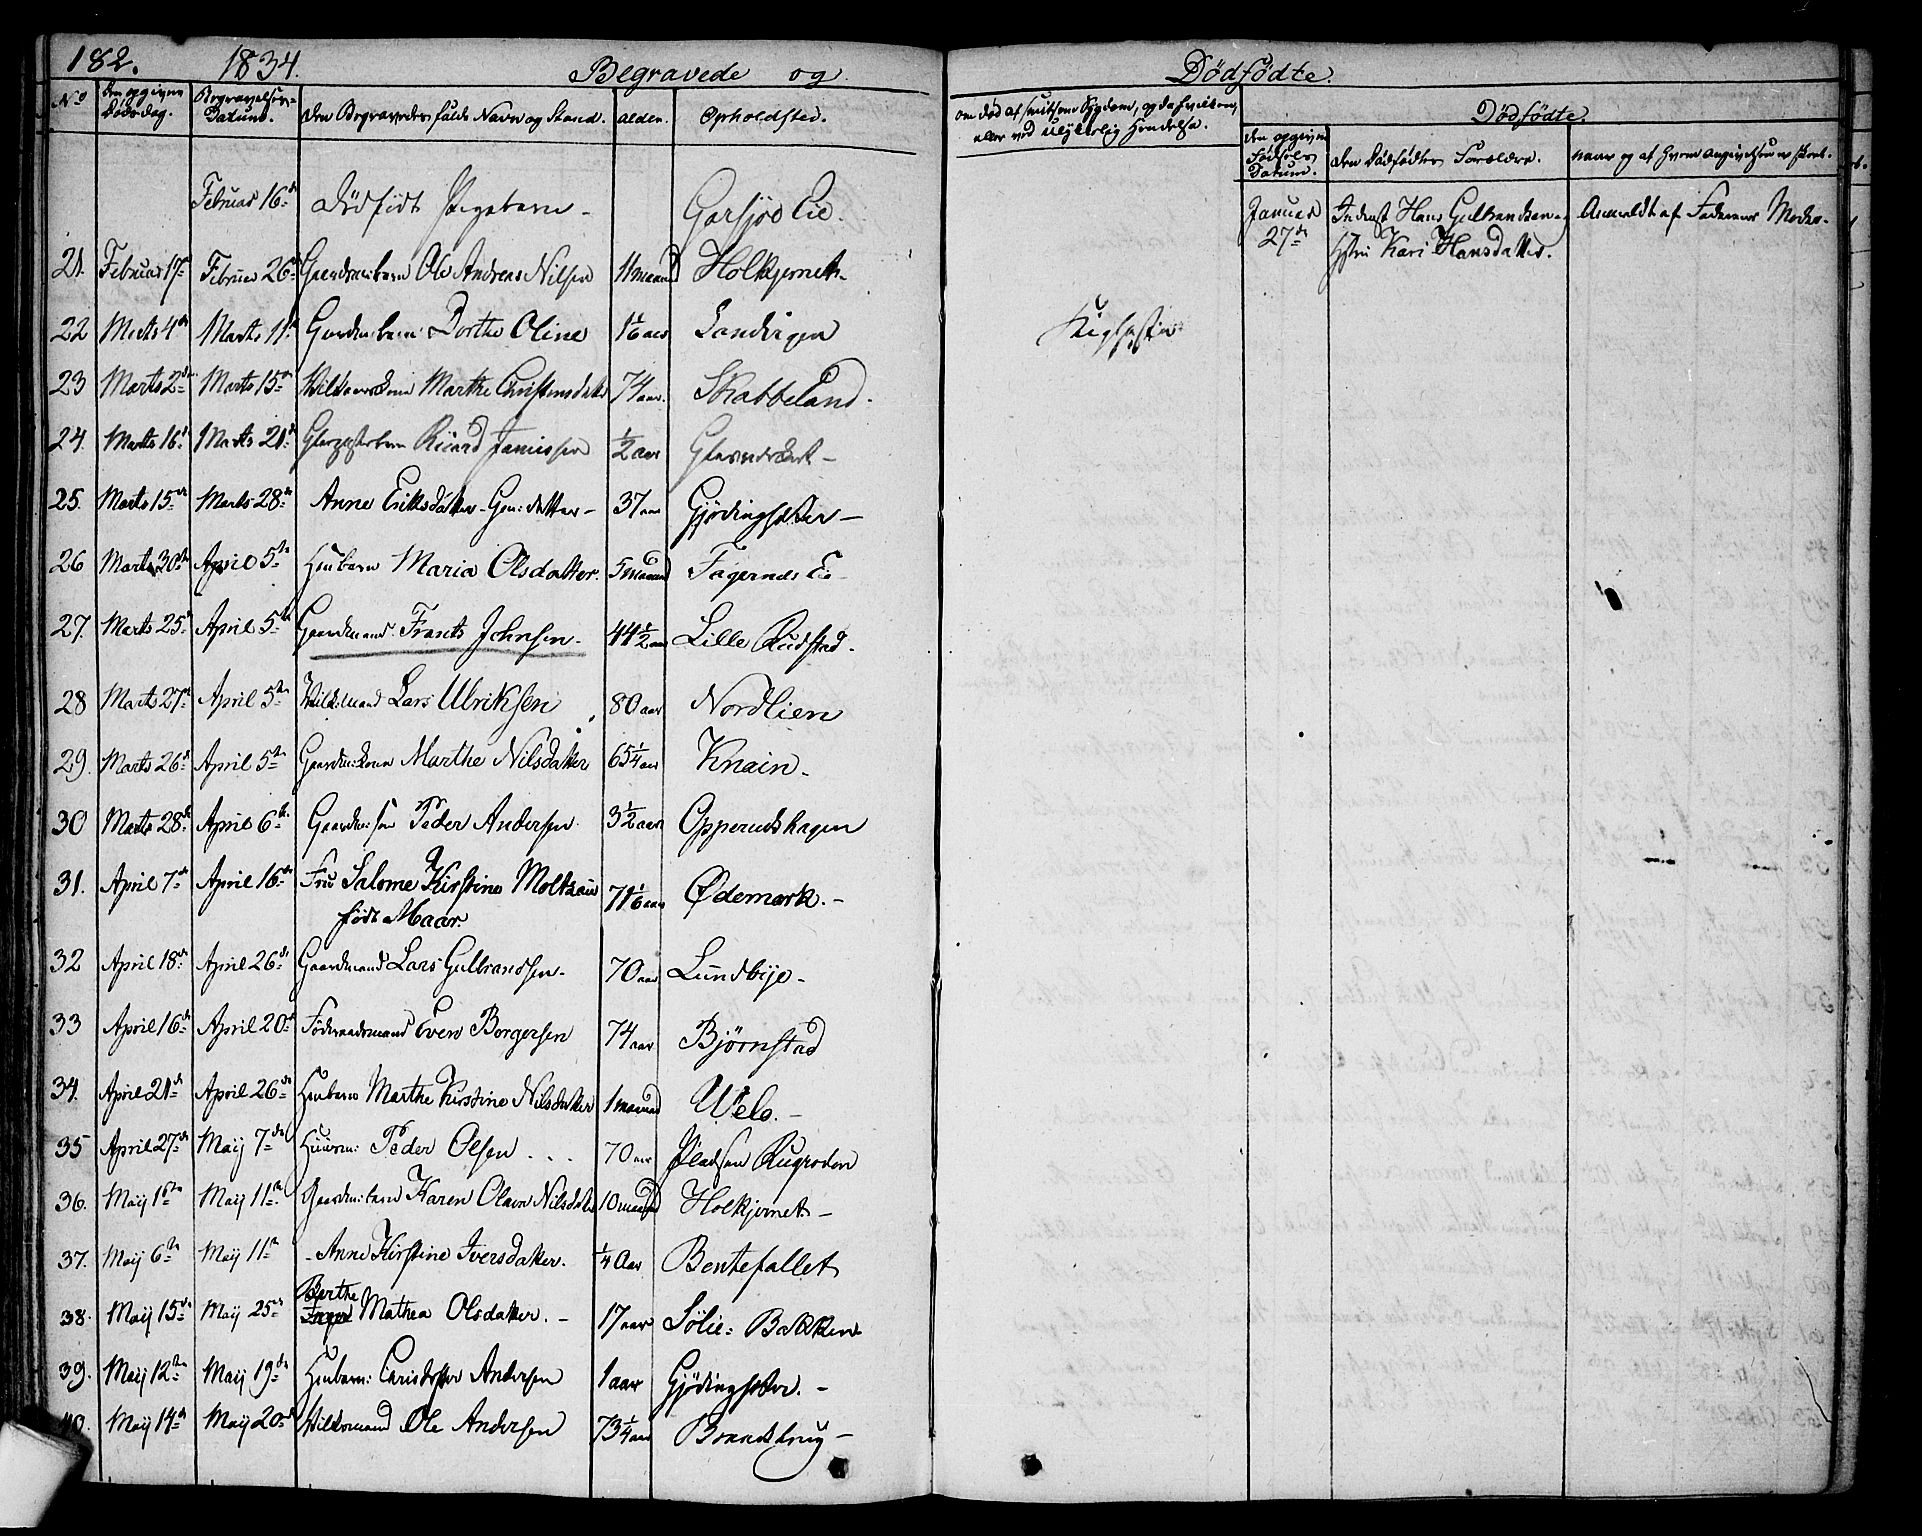 182. 1834. Begravede og Dødfødte.
No Den opgivne Dødsdag. Begravelses-Datum. Den Begravedes fulde Navn og Stand. Alder. Opholdsted. om død af smitsom Sygdom, og da hvilken, eller ved ulykkelig Hændelse. Dødfødte.
Den opgivne Fødsels Datum. Den Dødfødtes Forældre. naar og af hvem Angivelsen er skeet.
Februar 16de Dødfødt Pigebarn - Garsjøe Eie. Januar 27de Inderst Hans Gulbrandsen og Hstru Kari Hansdatter. Anmeldt af Faderens Moder.
21. Februar 17de Februar 26de Gaardm: barn Ole Andreas Nilsen 11 maaned Holkjernet
22 Marts 4de Marts 11te Gardm: barn Dorthe Oline 1 1/6 aar Sandvigen Kighoste
23 Marts 2den Marts 15de Vilkaarskone Marthe Christensdatter 74 aar. Skabbeland.
24. Marts 16de Marts 21de Ricard 1/2 aar
25. Marts 15de Marts 28de Anne Eriksdatter - Gm: datter - 37 aar Gjødingsæter -
26 Marts 30te April 5te Huusbarn Maria Olsdatter. 5 maaned Fagernes Eie -
27. Marts 25de April 5te Gaardmand Frants Johnsen - 44 1/2 aar Lille Rudstad.
28 Marts 27de April 5te Vilk:mand Lars Ulriksen 80 aar Nordlien
29. Marts 26de April 5te Gaardm:kone Marthe Nilsdatter 65 1/4 aar Knain -
30 Marts 28de April 6te Gaardm: søn Peder Andersen 3 1/2 aar Opperudshagen
31. April 7de April 16de Fru Salome Kirstine Moltzau født Maar. 71 1/6 aar Ødemark. -
32 April 18de April 26de Gaardmand Lars Gulbrandsen - 70 aar Lundbye -
33 April 16de April 20de Føderaadsmand Even Borgersen 74 aar Bjørnstad
34. April 21de April 26de Huusbarn Marthe Kirstine Nilsdatter 1 maaned Welo. -
35 April 27de Maij 7de Huusm: Peder Olsen . . . 70 aar Pladsen Rugroden
36. Maij 1ste Maij 11te Gaardm:barn Karen Olava Nilsdatter 10 maaned Holkjernet -
37. Maij 6te Maij 11te - Anne Kirstine Iversdatter. 1/4 Aar Bentefallet
38. Maij 15de Maij 25de Berthe Mathea Olsdatter. - 17 aar Sølie: Bakken
39. Maij 12te Maij 19de Huusbarn: Christoffer Andersen 1 aar Gjødingsæter. -
40. Maij 14de Maij 20de Vilkaarsmand Ole Andersen 73 1/4 aar Brandsbrug -